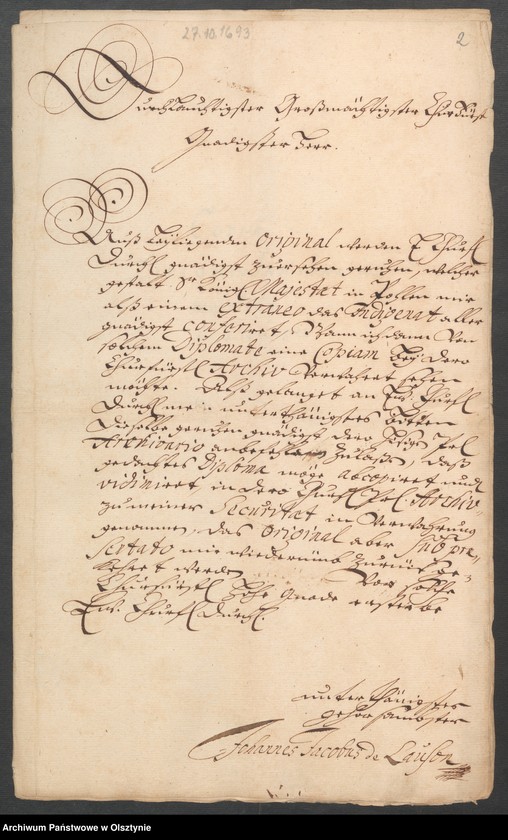 27.10.1693
2
Durchlauchtigster Großmächtigster Churfürst
Gnädigster Herr.
Auß beyliegenden Original werden E. Churfl
Durchl gnädigst zuersehen geruhen, welcher
gestalt Sr Königl Majestät in Pollen mir
alß einem extraneo das Indigenat aller
gnädigst conferiret, Wann ich dann Von
solchem Diplomate eine Copiam bey dero
Churfürstl Archiv Verwahret sehen
möchte. Alß gelanget an Ew. Churfl
Durchl mein unterthänigstes bitten
Dieselbe geruhen gnädigst dero
Archivario anbefehlen zulaßen, daß
gedachtes Diploma möge abcopiret und
vidimiret, in dero Churfl Archiv
zu meiner Securität in Verwahrung
genommen, das Original aber sub prae-
sentato mir wiederumb zurück ge-
kehret werden Vor solche
Churfürstl hohe Gnade ersterbe
Ew. Churfl Durchl.
unterthänigster
gehorsambster
Johannes Jacobus de Lauson
Archiwum Państwowe w Olsztynie